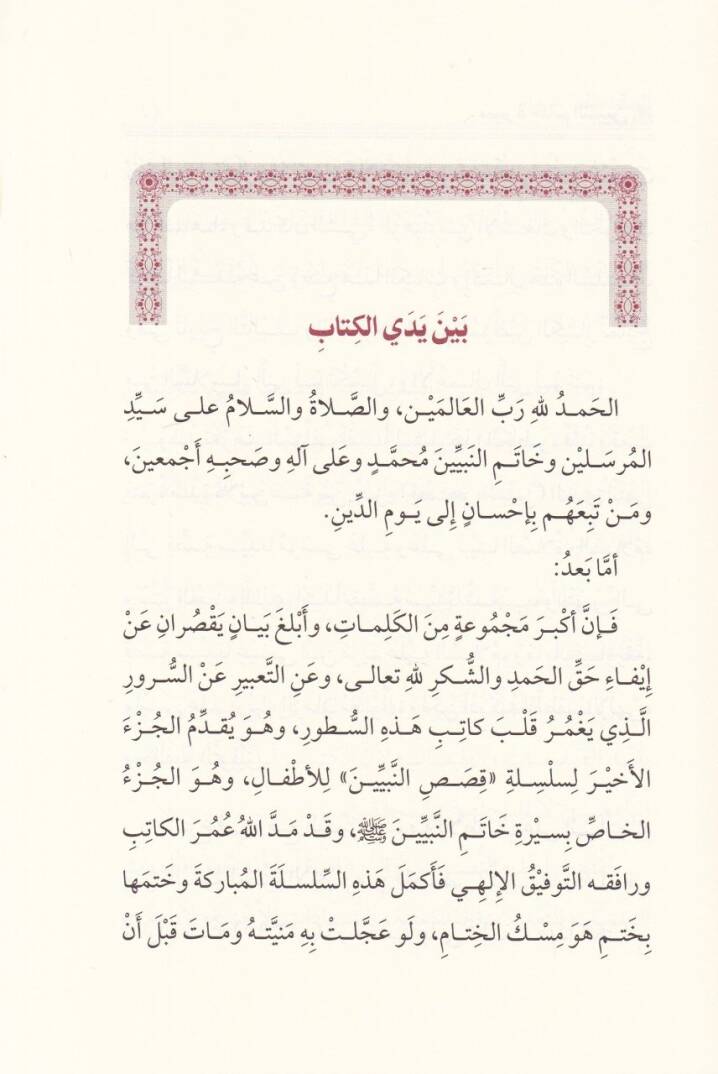 بَيْنَ يَدَي الكِتابِ
الحَمدُ للهِ رَبِّ العَالَميْن، والصَّلاةُ والسَّلامُ على سَيِّدِ
المُرسَليْن وخَاتَمِ النبيِّينَ مُحمَّدٍ وعَلى آلِهِ وصَحبِهِ أَجْمعينَ،
ومَنْ تَبِعَهُم بِإحْسانٍ إلى يَومِ الدِّينِ.
أمَّا بَعدُ:
فَإنَّ أكْبرَ مَجْمُوعةٍ مِنَ الكَلِماتِ، وأَبْلغَ بَيانٍ يَقْصُرانِ عَنْ
إيْفاءِ حَقِّ الحَمدِ والشُّكرِ للهِ تعالى، وعَنِ التَّعبيرِ عَنْ السُّرورِ
الَّذِي يَغْمُرُ قَلْبَ كاتِبِ هَذِهِ السُّطورِ، وهُوَ يُقدِّمُ الجُزْءَ
الأَخيْرَ لِسلْسِلةِ «قِصَصِ النَّبيِّينَ» لِلأطْفالِ، وهُوَ الجُزْءُ
الخاصِّ بِسيْرةِ خَاتَمِ النَّبيِّينَ ﷺ، وقَدْ مَدَّ اللهُ عُمُرَ الكاتِبِ
ورافَقَه التَّوفيْقُ الإلهِي فَأَكمَلَ هَذهِ السِّلسلَةَ المُباركةَ وخَتمَها
بِختمٍ هَوَ مِسْكُ الخِتامِ، ولَو عَجَّلتْ بِهِ مَنيَّتهُ ومَاتَ قَبْلَ أنْ